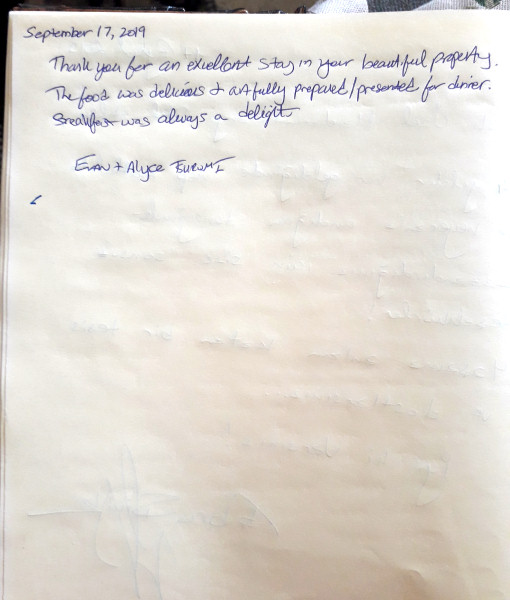 September 17, 2019
Thank you for an excellent stay in your beautiful property.
The food was delicious + artfully prepared/presented for dinner.
Breakfast was always a delight.
Evan + Alyce Tsurumi